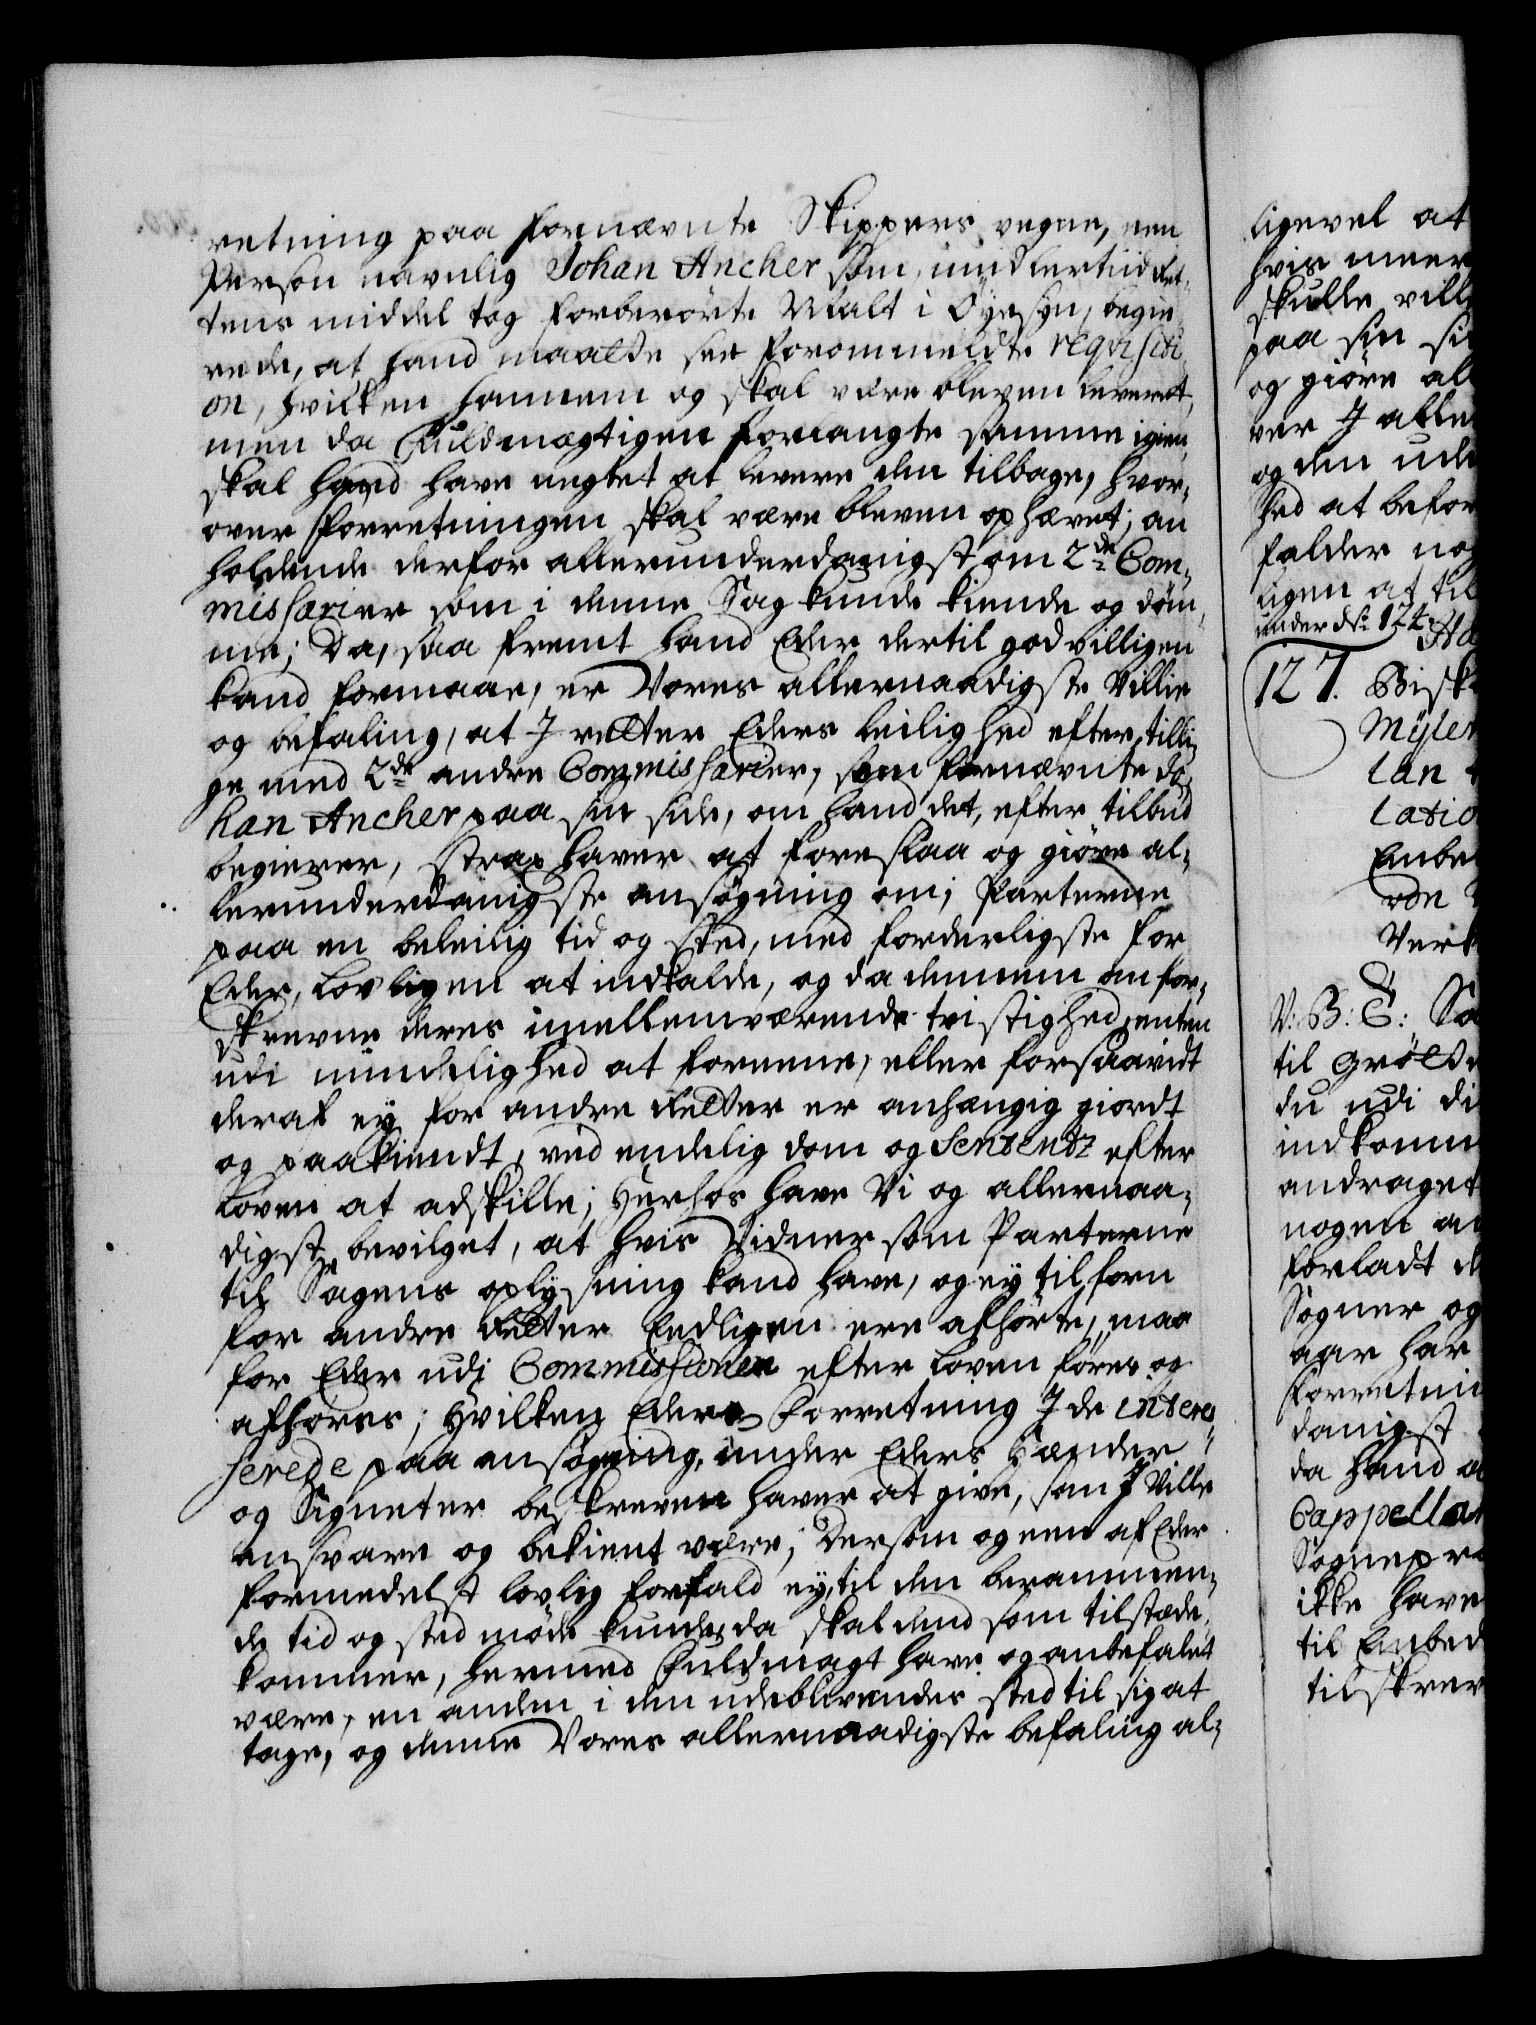 retning paa fornævnte Skippers vegne, een
Person navnlig Johan Ancher som, imidlertiid Ret-
tens middel tog forberörte Malt i Öyesyn, begie-
rede, at hand maatte see forommeldte reqvisiti-
on, hvilken hannem og skal være bleven leveret,
men da Fuldmægtigen forlangte samme igien,
skal hand have negtet at levere den tilbage, hvor-
over forretningen skal være bleven ophævet; an
holdende derfor allerunderdanigst om 2de Com-
missarier som i denne Sag kunde kiende og döm-
me; Da, saa fremt hand Eder dertil godvilligen
kand formaae, er Vores allernaadigste Villie
og befaling, at I retter Eders leilighed efter, tilli-
ge med 2de andre Commissarier, som fornævnte Jo-
han Ancher paa sin side, om hand det, efter tilbud
begierer, strax haver at foreslaa og giöre al-
lerunderdanigste ansøgning om; Parterne
paa en beleilig tid og sted, med forderligste for
Eder, lovligen at indkalde, og da dennem an for-
skrevne deres imellemværende tvistighed, enten
udi mindelighed at foreene, eller forsaavidt
deraf ey for andre Retter er anhængig giordt
og paakiendt, ved endelig dom og Sententz efter
Loven at adskille; Herhos have Vi og allernaa-
digst bevilget, at hvis Vidner som Parterne
til Sagens oplysning kand have, og ey tilforn
for andre Retter Eedligen ere afhörte, maa
for Eder udi Commissionen efter Loven föres og
afhöres; Hvilken Eders Forretning I de interes-
serede paa ansøgning, under Eders Hænder
og Signeter beskreven haver at give, som I Ville
ansvare og bekient være; Dersom og een af Eder
formedelst lovlig forfald ey, til den berammen-
de tid og sted möde kunde, da skal dend som tilstæde
kommer, hermed Fuldmagt have og anbefalet
være, en anden i den udeblivendes sted til sig at
tage, og denne Vores allernaadigste befaling al-
ligevel at
hvis meer
skulle vill
paa sin si
og giöre al
ver I alle
og den ude
hed at befor
falder no
ligen at til
under ds: 124.
127. Bisk
Myler
lan
latio
Enbe
Verk
V: B: G: Sa
til Gröet
du udi di
indkomm
andraget
nogen an
forladt d
Sogner og
aar har
forretni
danigst
da hand a
Cappella
Sognepr
ikke have
til Embed
tilskrev